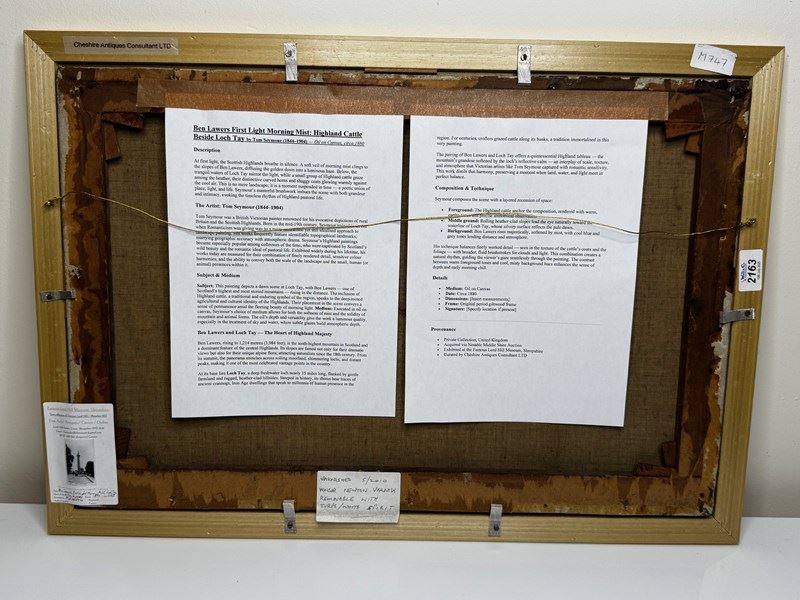 Cheshire Antiques Consultant LTD
M.747
Ben Lawers First Light Morning Mist: Highland Cattle
Beside Loch Tay by Tom Seymour (1844–1904) — Oil on Canvas, circa 1880
Description
At first light, the Scottish Highlands breathe in silence. A soft veil of morning mist clings to
the slopes of Ben Lawers, diffusing the golden dawn into a luminous haze. Below, the
tranquil waters of Loch Tay mirror the light, while a small group of Highland cattle graze
among the heather, their distinctive curved horns and shaggy coats glowing warmly against
the cool air. This is no mere landscape; it is a moment suspended in time — a poetic union of
place, light, and life. Seymour's masterful brushwork imbues the scene with both grandeur
and intimacy, evoking the timeless rhythm of Highland pastoral life.
The Artist: Tom Seymour (1844–1904)
Tom Seymour was a British Victorian painter renowned for his evocative depictions of rural
Britain and the Scottish Highlands. Born in the mid-19th century, Seymour
when Romanticism was giving way to a more
landscape painting. His works frequently feature identifiable topographical landmarks,
marrying geographic accuracy with atmospheric drama. Seymour's Highland paintings
became especially popular among collectors of the time, who were captivated by Scotland's
wild beauty and the romantic ideal of pastoral life. Exhibited widely during his lifetime, his
works today are treasured for their combination of finely rendered detail, sensitive colour
harmonies, and the ability to convey both the scale of the landscape and the small, human (or
animal) presences within it.
Subject & Medium
Subject: This painting depicts a dawn scene at Loch Tay, with Ben Lawers — one of
Scotland's highest and most storied mountains — rising in the distance. The inclusion of
Highland cattle, a traditional and enduring symbol of the region, speaks to the deep-rooted
agricultural and cultural identity of the Highlands. Their placement in the scene conveys a
sense of permanence amid the fleeting beauty of morning light. Medium: Executed in oil on
canvas, Seymour's choice of medium allows for both the softness of mist and the solidity of
mountain and animal forms. The oil's depth and versatility give the work a luminous quality,
especially in the treatment of sky and water, where subtle glazes build atmospheric depth.
Ben Lawers and Loch Tay — The Heart of Highland Majesty
Ben Lawers, rising to 1,214 metres (3,984 feet), is the tenth-highest mountain in Scotland and
a dominant feature of the central Highlands. Its slopes are famed not only for their dramatic
views but also for their unique alpine flora, attracting naturalists since the 18th century. From
its summit, the panorama stretches across rolling moorland, shimmering lochs, and distant
peaks, making it one of the most celebrated vantage points in the country.
At its base lies Loch Tay, a deep freshwater loch nearly 15 miles long, flanked by gentle
farmland and rugged, heather-clad hillsides. Steeped in history, its shores bear traces of
ancient crannogs, Iron Age dwellings that speak to millennia of human presence in the
region. For centuries, crofters grazed cattle along its banks, a tradition immortalised in this
very painting.
The pairing of Ben Lawers and Loch Tay offers a quintessential Highland tableau — the
mountain's grandeur softened by the loch's reflective calm — an interplay of scale, texture,
and atmosphere that Victorian artists like Tom Seymour captured with romantic sensitivity.
This work distils that harmony, preserving a moment when land, water, and light meet in
perfect balance.
Composition & Technique
Seymour composes the scene with a layered recession of space:
• Foreground: The Highland cattle anchor the composition, rendered with warm,
earthy tones and precise anatomical observation.
• Middle ground: Rolling heather-clad slopes lead the eye naturally toward the
waterline of Loch Tay, whose silvery surface reflects the pale dawn.
• Background: Ben Lawers rises majestically, softened by mist, with cool blue and
grey tones
His technique balances finely worked detail — seen in the texture of the cattle's coats and the
foliage — with broader, fluid brushstrokes for clouds and light. This combination creates a
natural rhythm, guiding the viewer's gaze seamlessly through the painting. The contrast
between warm foreground tones and cool, misty background hues enhances the sense of
depth and early morning chill.
Details
• Medium: Oil on Canvas
• Date: Circa 1880
• Dimensions: [Insert measurements]
• Frame: Original period giltwood frame
• Signature: [Specify location if present]
Provenance
• Private Collection, United Kingdom
• Acquired via Notable Middle Shire Auction
• Exhibited at the Famous Lord Hill Museum, Shropshire
• Curated by Cheshire Antiques Consultant LTD
2163
VARNISHED 5/2010
WINSOR NEWTON VARNISH
REMOVABLE WITH
TURPS/WHITE SPIRIT